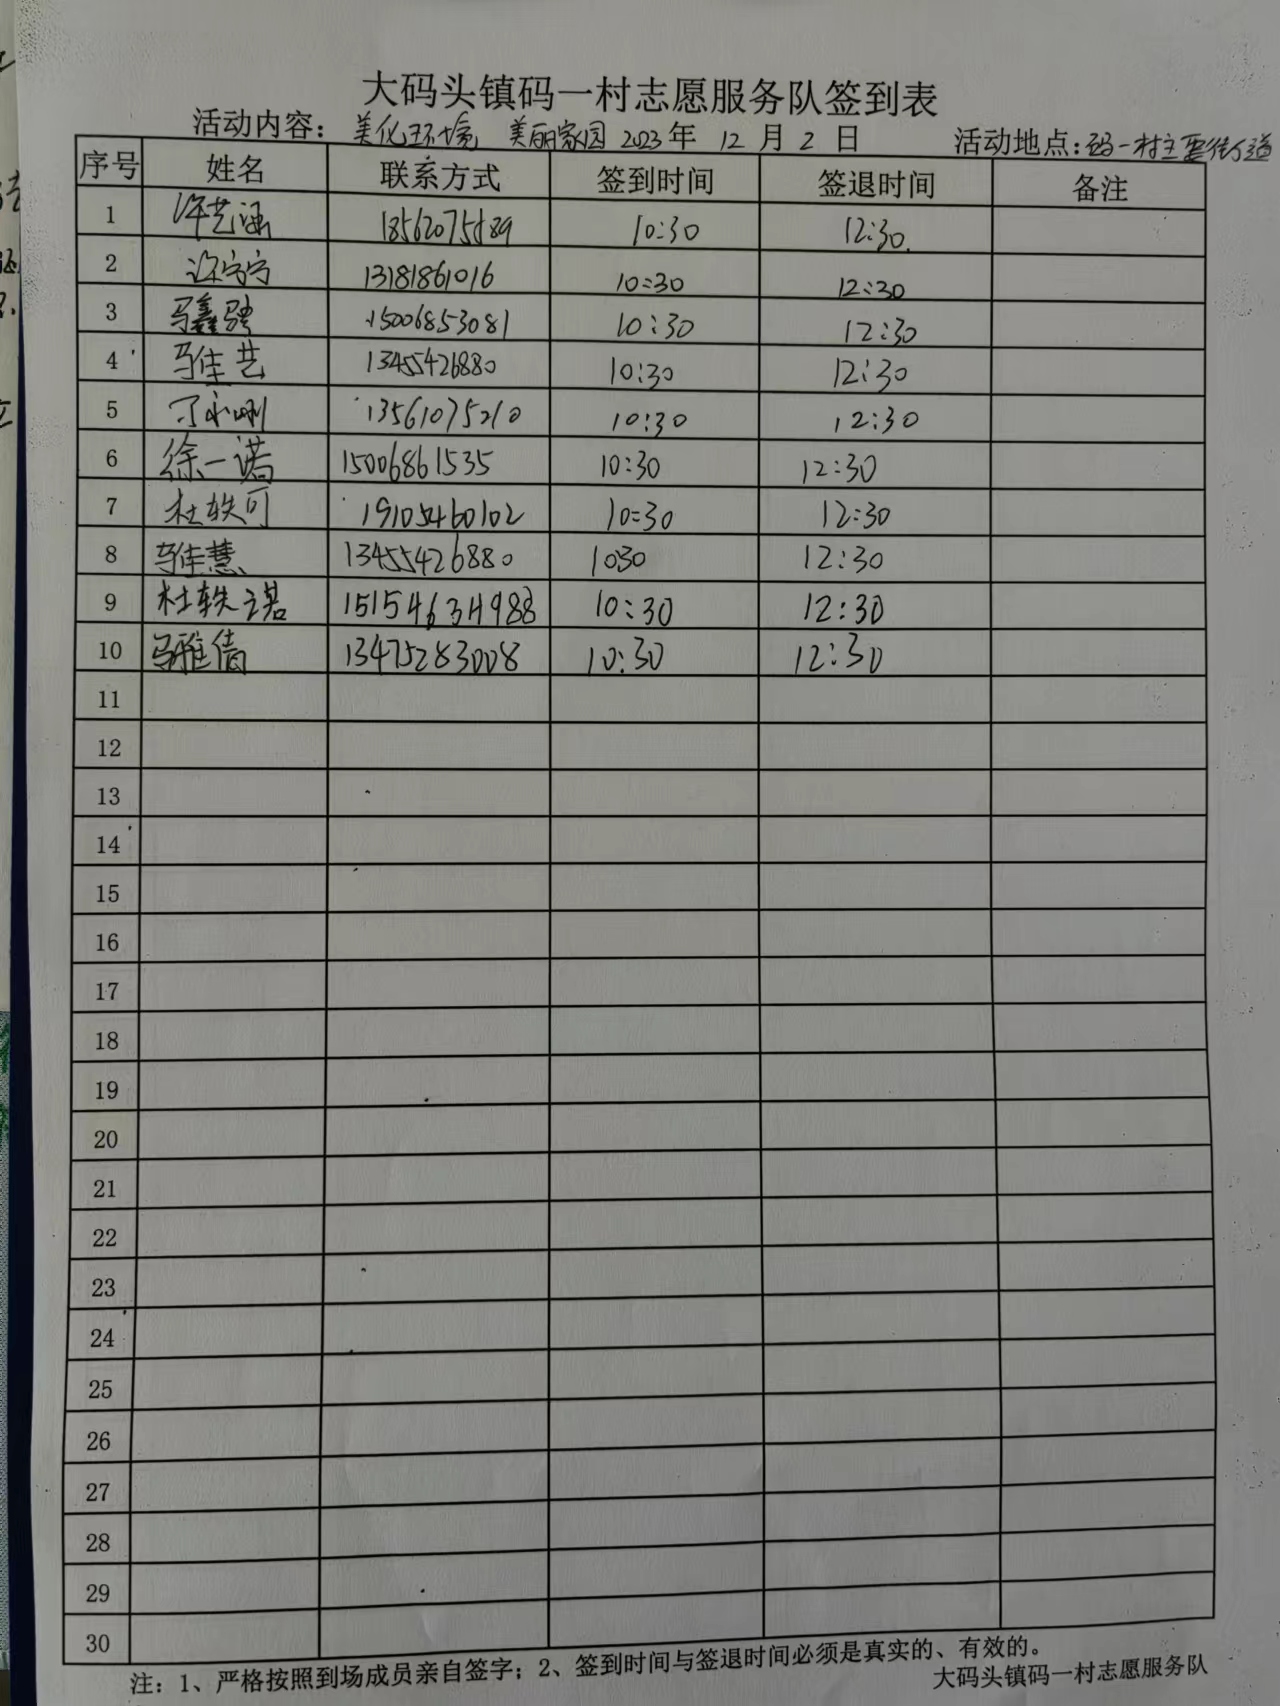 大码头镇码一村志愿服务队签到表
活动内容：美化环境 美丽家园 2023年 12月 2日 活动地点：码一村主要街道
序号 姓名 联系方式 签到时间 签退时间 备注
1 许艺涵 10:30 12:30
2 13181861016 10:30 12:30
3 马鑫骋 15006853081 10:30 12:30
4 马佳艺 13455426880 10:30 12:30
5 13561075210 10:30 12:30
6 徐一诺 15006861535 10:30 12:30
7 杜轶可 19105460102 10:30 12:30
8 马佳慧 13455426880 10:30 12:30
9 杜轶诺 15154634988 10:30 12:30
10 马雅倩 13475283008 10:30 12:30
11
12
13
14
15
16
17
18
19
20
21
22
23
24
25
26
27
28
29
30
注：1、严格按照到场成员亲自签字；2、签到时间与签退时间必须是真实的、有效的。
大码头镇码一村志愿服务队